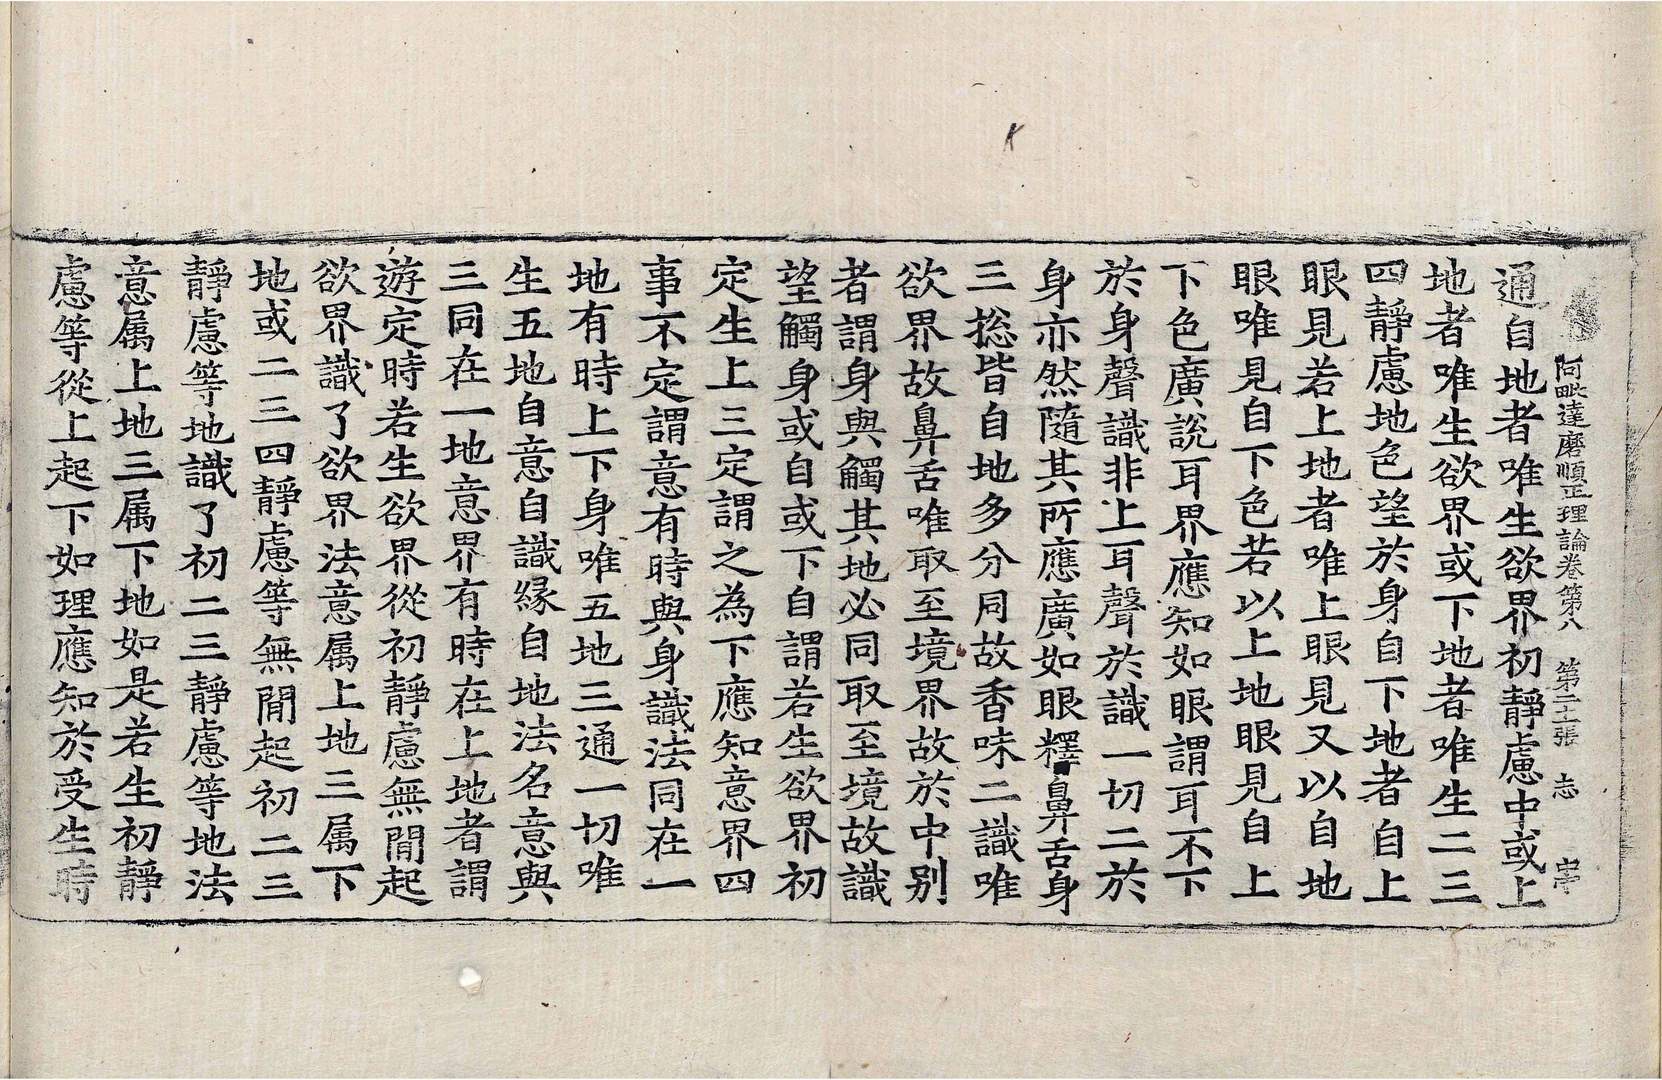 阿毗達磨順正理論卷第八 第二十張 志
通自地者唯生欲界初靜慮中或上
地者唯生欲界或下地者唯生二三
四靜慮地色望於身自下地者自上
眼見若上地者唯上眼見又以自地
眼唯見自下色若以上地眼見自上
下色廣說耳界應知如眼謂耳不下
於身聲識非上耳聲於識一切二於
身亦然隨其所應廣如眼釋鼻舌身
三捴皆自地多分同故香味二識唯
欲界故鼻舌唯取至境界故於中別
者謂身與觸其地必同取至境故識
望觸身或自或下自謂若生欲界初
定生上三定謂之為下應知意界四
事不定謂意有時與身識法同在一
地有時上下身唯五地三通一切唯
生五地自意自識緣自地法名意與
三同在一地意界有時在上地者謂
遊定時若生欲界從初靜慮無閒起
欲界識了欲界法意属上地三属下
地或二三四靜慮等無閒起初二三
靜慮等地識了初二三靜慮等地法
意属上地三属下地如是若生初靜
慮等從上起下如理應知於受生時